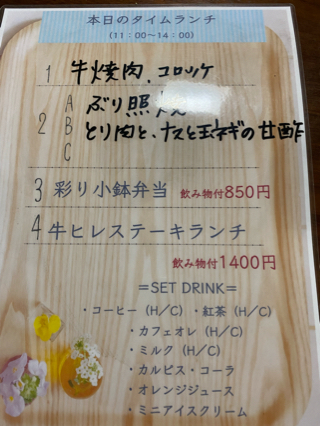 本日のタイムランチ
(11:00～14:00)
1 牛焼肉、コロッケ
2
A ぶり照焼
B とり肉と、ナスと玉ネギの甘酢
C
3 彩り小鉢弁当 飲み物付850円
4 牛ヒレステーキランチ
飲み物付1400円
=SET DRINK=
・コーヒー(H/C)・紅茶(H/C)
・カフェオレ(H/C)
・ミルク(H/C)
・カルピス・コーラ
・オレンジジュース
・ミニアイスクリーム